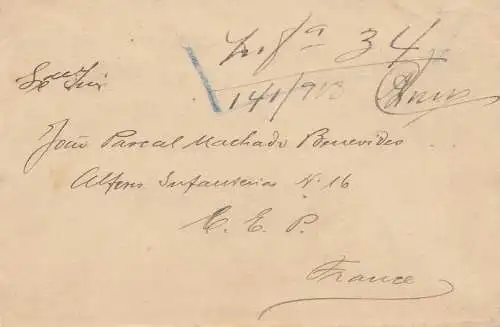 Inf.ª 34
141/913
João Pascal Machado Benevides
Alferes Infanteria N. 16
C. E. P.
France